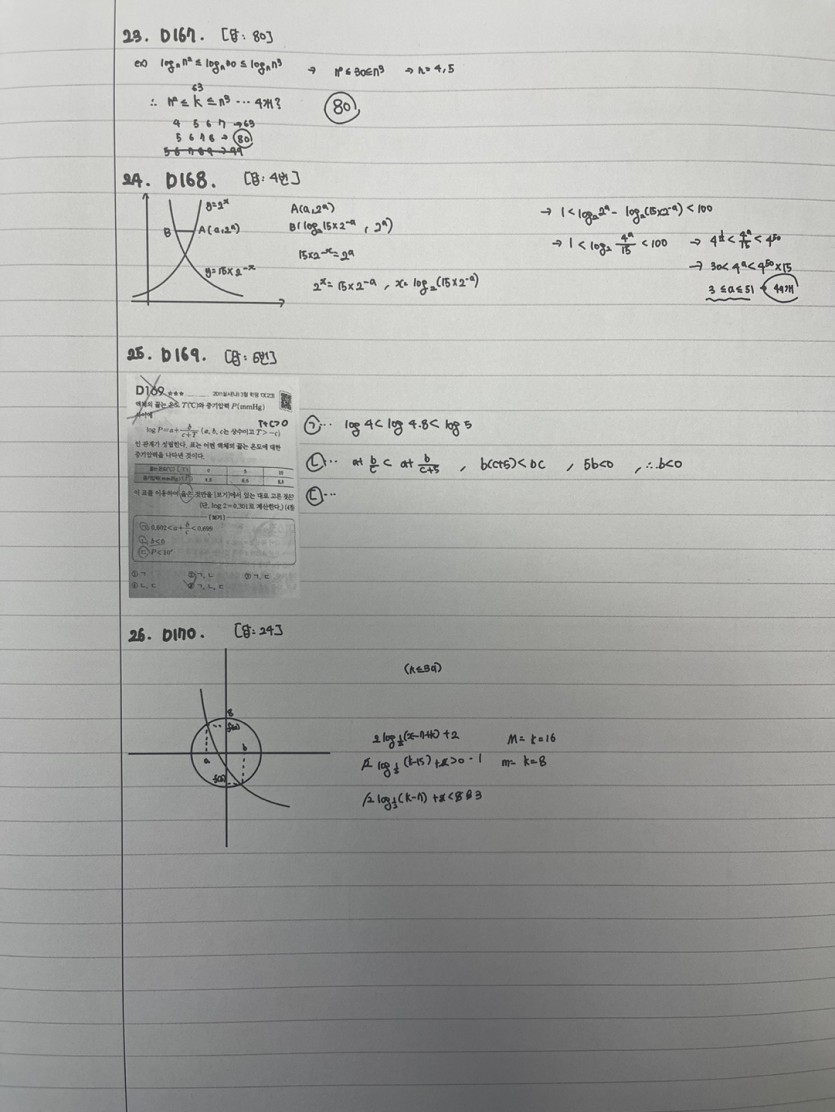 23. D167. [답: 80]
ex) logₙn² ≤ logₙ80 ≤ logₙn³ → n² ≤ 30 ≤ n³ → n = 4, 5
63
∴ n² ≤ k ≤ n³ ... 4개? 80
4 5 6 7 → 63
5 6 7 8 → 80
5 6 7 8 9 → 99
24. D168. [답: 4번]
y=2ˣ
B A(a, 2ᵃ)
y=15×2⁻ˣ
A(a, 2ᵃ)
B(log₂15×2⁻ᵃ, 2ᵃ)
15×2⁻ˣ=2ᵃ
2ˣ=15×2⁻ᵃ, x=log₂(15×2⁻ᵃ)
→ 1<log₂2ᵃ - log₂(15×2⁻ᵃ)<100
→ 1<log₂ 4ᵃ/15 <100 → 4^½ < 4ᵃ/15 < 4⁵⁰
→ 30<4ᵃ<4⁵⁰×15
3≤a≤51 → 49개
25. D169. [답: 5번]
D169
액체의 끓는 온도 T(℃)와 증기압력 P(mmHg)
T+C>0
log P=a+b/(c+T) (a, b, c는 상수이고 T>-c)
인 관계가 성립한다. 표는 어떤 액체의 끓는 온도에 대한
증기압력을 나타낸 것이다.
0 5 10
4.8 6.6 8.8
이 표를 이용하여 옳은 것만을 [보기]에서 있는 대로 고른 것은?
(단, log 2=0.301로 계산한다.) (4점)
[보기]
ㄱ. 0.602<a+b/c<0.699
ㄴ. b<0
① ㄱ ② ㄱ, ㄴ ③ ㄱ, ㄷ
④ ㄴ, ㄷ ⑤ ㄱ, ㄴ, ㄷ
㉠... log 4 < log 4.8 < log 5
㉡... a+ b/c < a+ b/(c+5) , b(c+5)<bc , 5b<0 , ∴b<0
㉢...
26. D170. [답: 24]
8
f(a)
a b
(n≤3a)
M= k=16
m= k=8